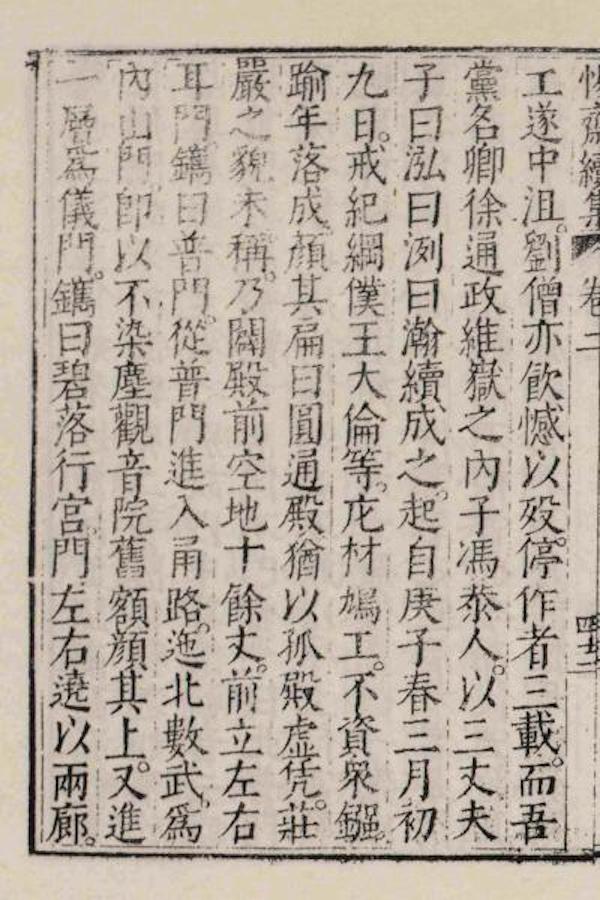 齋續集 卷二 四十二
工遂中沮。劉僧亦飲憾以歿。停作者三載。而吾
黨名卿徐通政維嶽之內子馮恭人。以三丈夫
子曰泓曰洌曰瀚續成之。起自庚子春三月初
九日。戒紀綱僕王大倫等。庀材鳩工。不資衆鏹。
踰年落成。顏其扁曰圓通殿。猶以孤殿虛凭。莊
嚴之貌未稱。乃闢殿前空地十餘丈。前立左右
耳門。鐫曰普門。從普門進入甬路。迤北數武。爲
內山門。卽以不染塵觀音院舊額顏其上。又進
一層爲儀門。鐫曰碧落行宮。門左右遶以兩廊。